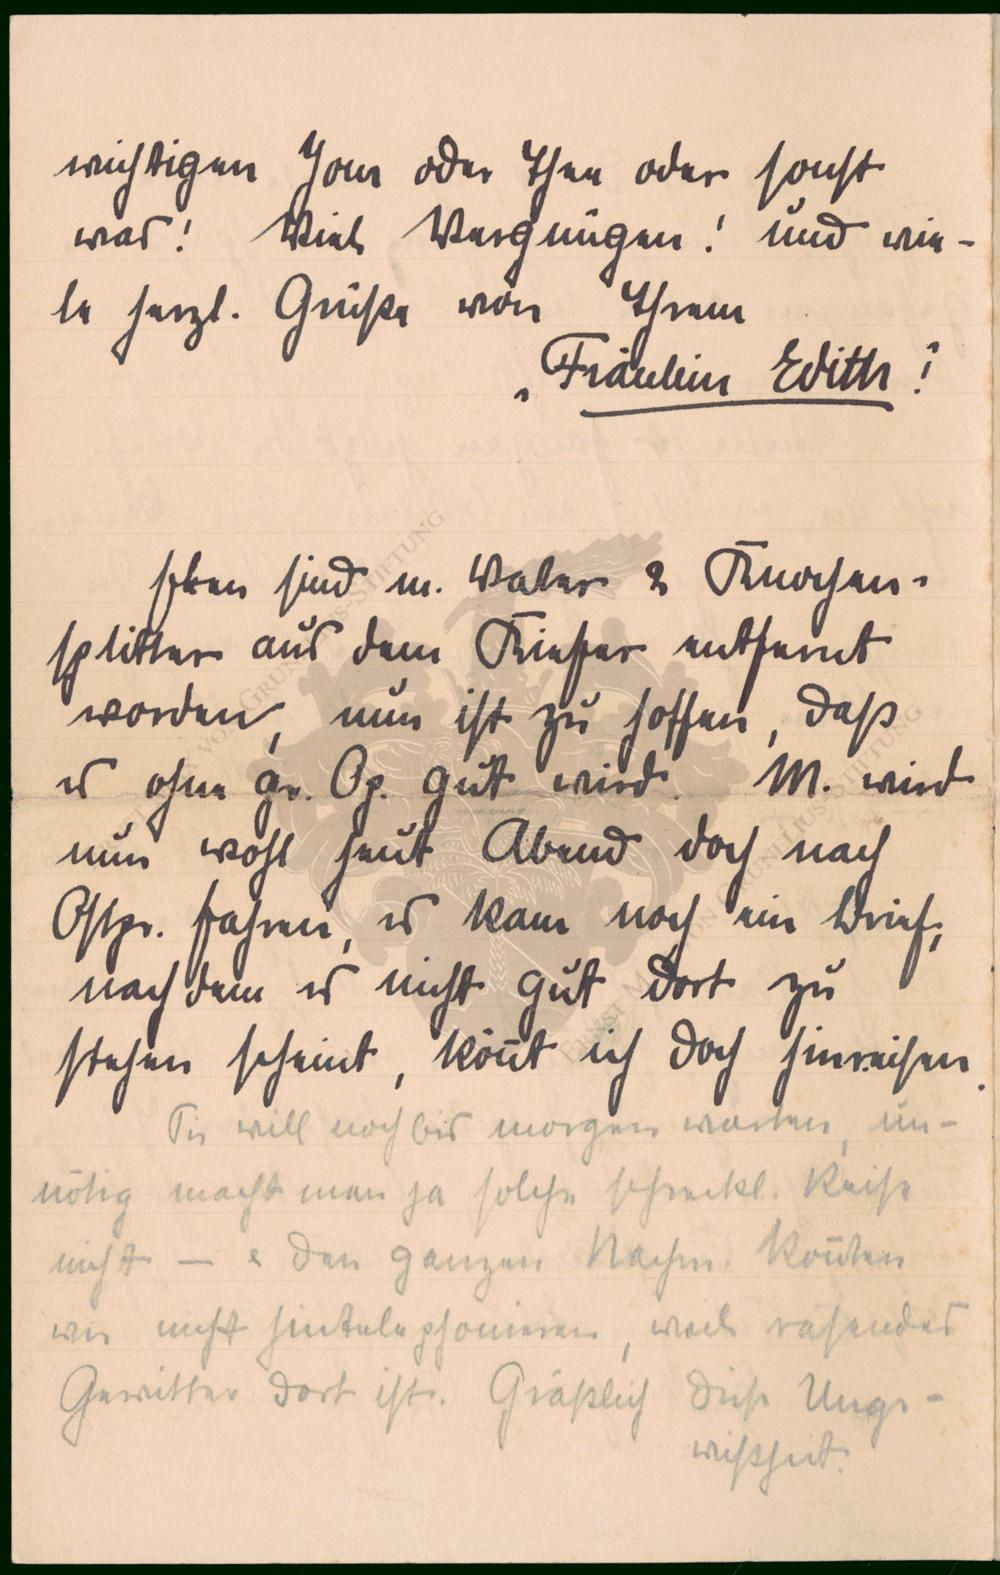 wichtigen Jour oder Thee oder sonst
was! Viel Vergnügen! und vie-
le herzl. Grüße von Ihrem
„Fräulein Edith!
Eben sind m. Vater 2 Knochen-
splitter aus dem Kiefer entfernt
worden, nun ist zu hoffen, daß
es ohne gr. Op. gut wird. M. wird
nun wohl heut Abend doch nach
Ostpr. fahren, es kam noch ein Brief,
nach dem es nicht gut dort zu
stehen scheint, könt ich doch hinreisen.
Sie will noch bis morgen warten, un-
nötig macht man ja solche schreckl. Reise
nicht — & den ganzen Nachm. konten
wir nicht hintelephonieren, weil rasendes
Gewitter dort ist. Gräßlich diese Unge-
wißheit.